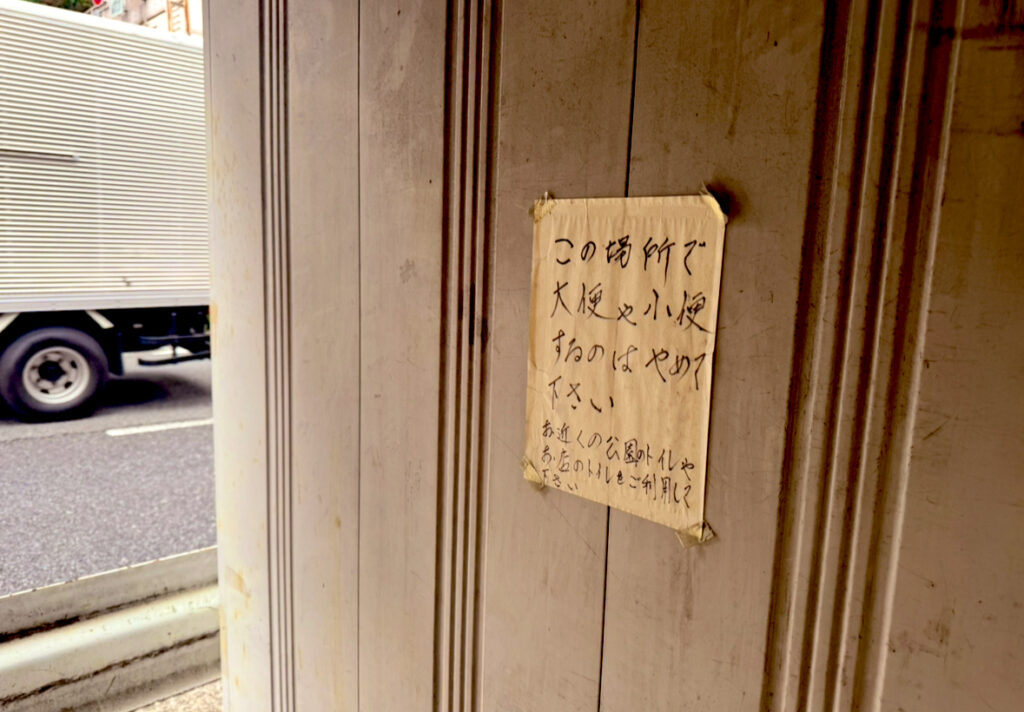 この場所で
大便や小便
するのはやめて
下さい
お近くの公園のトイレや
お店のトイレをご利用して
下さい